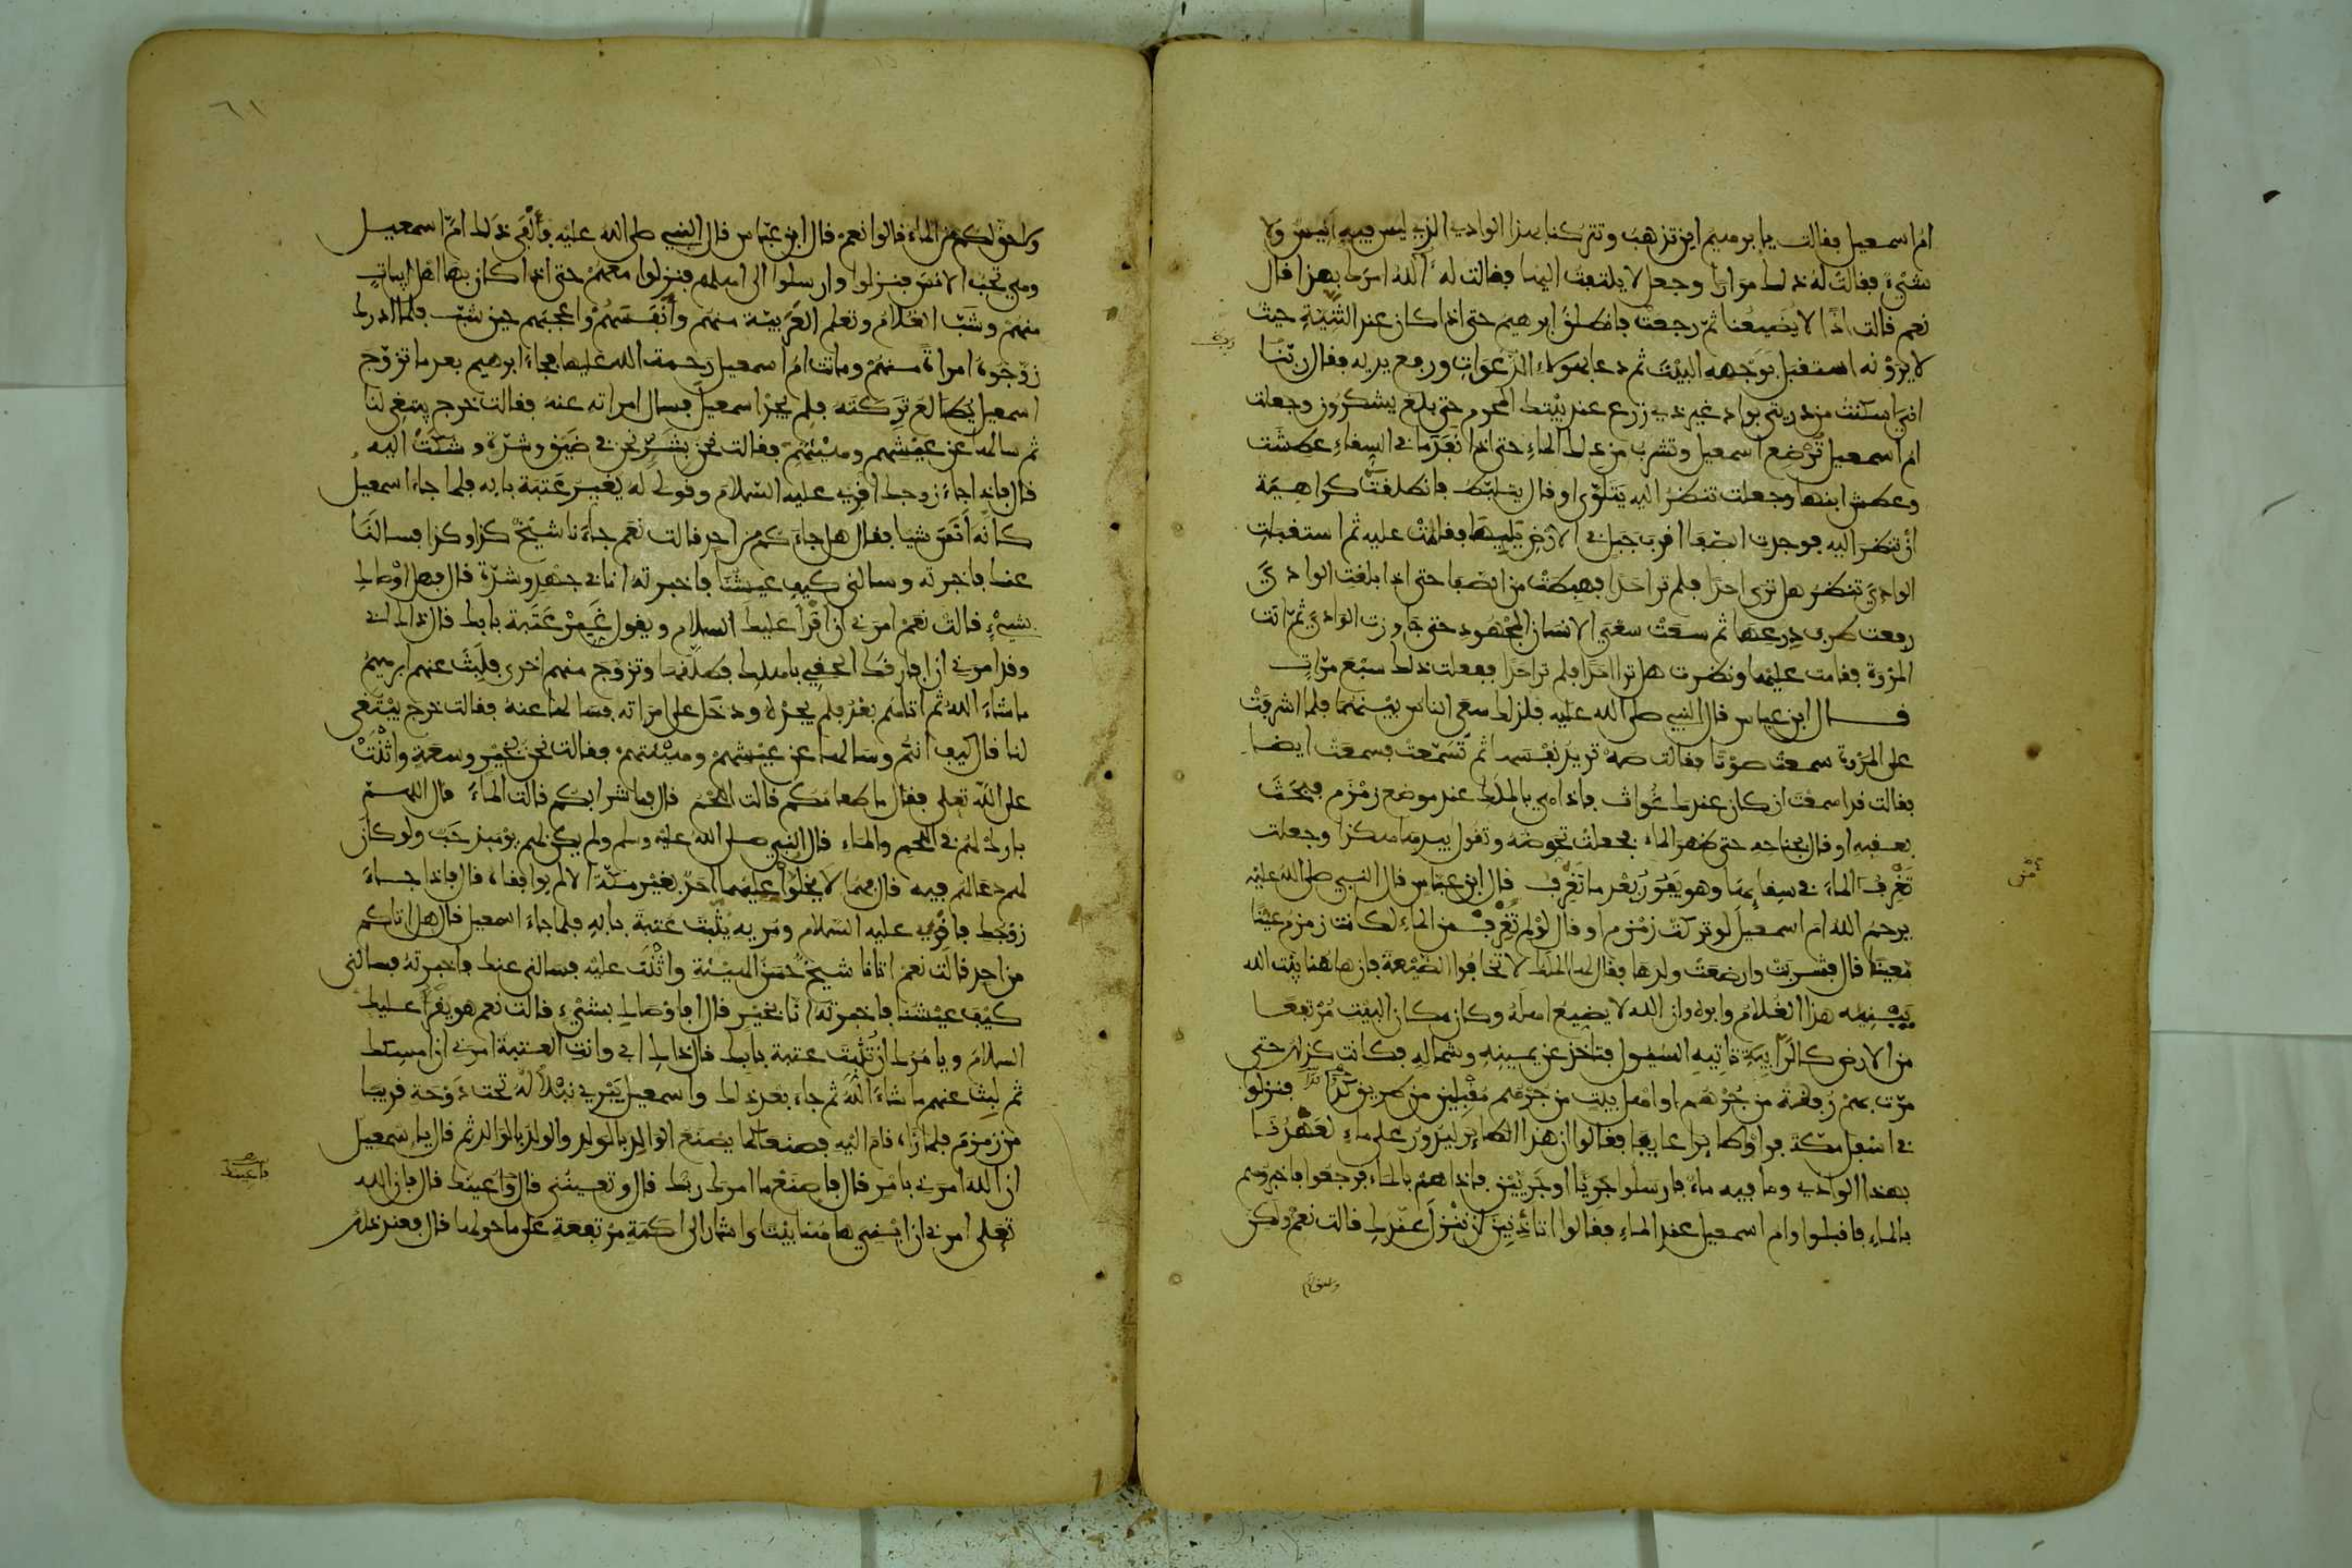 ام اسمعيل فقالت يا ابرهيم اين تذهب وتتركنا بهذا الوادي الذي ليس فيه انيس ولا
شيء فقالت له ذلك مرارا وجعل لا يلتفت اليها فقالت له آلله امرك بهذا قال
نعم قالت اذا لا يضيعنا ثم رجعت فانطلق ابرهيم حتى اذا كان عند الثنية حيث
لا يرونه استقبل بوجهه البيت ثم دعا بهؤلاء الدعوات ورفع يديه فقال ربنا
اني اسكنت من ذريتي بواد غير ذي زرع عند بيتك المحرم حتى بلغ يشكرون وجعلت
ام اسمعيل ترضع اسمعيل وتشرب من ذلك الماء حتى اذا نفد ما في السقاء عطشت
وعطش ابنها وجعلت تنظر اليه يتلوى او قال يتلبط فانطلقت كراهية
ان تنظر اليه فوجدت الصفا اقرب جبل في الارض يليها فقامت عليه ثم استقبلت
الوادي تنظر هل ترى احدا فلم تر احدا فهبطت من الصفا حتى اذا بلغت الوادي
رفعت طرف درعها ثم سعت سعي الانسان المجهود حتى جاوزت الوادي ثم اتت
المروة فقامت عليها ونظرت هل ترا احدا فلم تر احدا ففعلت ذلك سبع مرات
قال ابن عباس قال النبي صلى الله عليه فلذلك سعى الناس بينهما فلما اشرفت
على المروة سمعت صوتا فقالت صه تريد نفسها ثم تسمعت فسمعت ايضا
فقالت قد اسمعت ان كان عندك غواث فاذا هي بالملك عند موضع زمزم فبحث
بعقبه او قال بجناحه حتى ظهر الماء فجعلت تحوضه وتقول بيدها هكذا وجعلت
تغرف الماء في سقائها وهو يفور بعد ما تغرف قال ابن عباس قال النبي صلى الله عليه
يرحم الله ام اسمعيل لو تركت زمزم او قال لو لم تغرف من الماء لكانت زمزم عينا
معينا قال فشربت وارضعت ولدها فقال لها الملك لا تخافوا الضيعة فان هاهنا بيت الله
يبنيه هذا الغلام وابوه وان الله لا يضيع اهله وكان مكان البيت مرتفعا
من الارض كالرابية تاتيه السيول فتاخذ عن يمينه وشماله فكانت كذلك حتى
مرت بهم رفقة من جرهم او اهل بيت من جرهم مقبلين من طريق كدا فنزلوا
في اسفل مكة فراوا طائرا عايفا فقالوا ان هذا الطاير ليدور على ماء لعهدنا
بهذا الوادي وما فيه ماء فارسلوا جريا او جريين فاذا هم بالماء فرجعوا فاخبروهم
بالماء فاقبلوا وام اسمعيل عند الماء فقالوا اتأذنين لن ننزل عندك قالت نعم ولكن
ولا حق لكم في الماء قالوا نعم قال ابن عباس قال النبي صلى الله عليه فألفى ذلك ام اسمعيل
وهي تحب الانس فنزلوا وارسلوا الى اهلهم فنزلوا معهم حتى اذا كان بها اهل ابيات
منهم وشب الغلام وتعلم العربية منهم وأنفسهم واعجبهم حين شب فلما ادرك
زوجوه امراة منهم وماتت ام اسمعيل رحمة الله عليها فجاء ابرهيم بعد ما تزوج
اسمعيل يطالع تركته فلم يجد اسمعيل فسال امراته عنه فقالت خرج يبتغي لنا
ثم سالها عن عيشهم وهيئتهم فقالت نحن بشر نحن في ضيق وشدة وشكت اليه
قال فاذا جاء زوجك اقري عليه السلام وقولي له يغير عتبة بابه فلما جاء اسمعيل
كانه انس شيا فقال هل جاءكم من احد قالت نعم جاءنا شيخ كذا وكذا فسالنا
عنك فاخبرته وسالني كيف عيشنا فاخبرته انا في جهد وشدة قال فهل اوصاك
بشيء قالت نعم امرني ان اقرا عليك السلام ويقول غير عتبة بابك قال ذاك ابي
وقد امرني ان افارقك الحقي باهلك فطلقها وتزوج منهم اخرى فلبث عنهم ابرهيم
ما شاء الله ثم اتاهم بعد فلم يجده ودخل على امراته فسالها عنه فقالت خرج يبتغي
لنا قال كيف انتم وسالها عن عيشهم وهيئتهم فقالت نحن بخير وسعة واثنت
على الله تعلى فقال ما طعامكم قالت اللحم قال فما شرابكم قالت الماء قال اللهم
بارك لهم في اللحم والماء قال النبي صلى الله عليه وسلم ولم يكن لهم يومئذ حب ولو كان
لهم دعا لهم فيه قال فهما لا يخلوا عليهما احد بغير مكة الا لم يوافقاه قال فاذا جاء
زوجك فاقري عليه السلام ومريه يثبت عتبة بابه فلما جاء اسمعيل قال هل اتاكم
من احد قالت نعم اتانا شيخ حسن الهيئة واثنت عليه فسالني عنك فاخبرته فسالني
كيف عيشنا فاخبرته انا بخير قال افاوصاك بشيء قالت نعم هو يقرا عليك
السلام ويامرك ان تثبت عتبة بابك قال ذاك ابي وانت العتبة امرني ان امسكك
ثم لبث عنهم ما شاء الله ثم جاء بعد ذلك واسمعيل يبري نبلا له تحت دوحة قريبا
من زمزم فلما رءاه قام اليه فصنعا كما يصنع الوالد بالولد والولد بالوالد ثم قال يا اسمعيل
ان الله امرني بامر قال فاصنع ما امرك ربك قال وتعينني قال واعينك قال فان الله
تعلى امرني ان ابني هاهنا بيتا واشار الى اكمة مرتفعة على ما حولها قال فعند ذلك